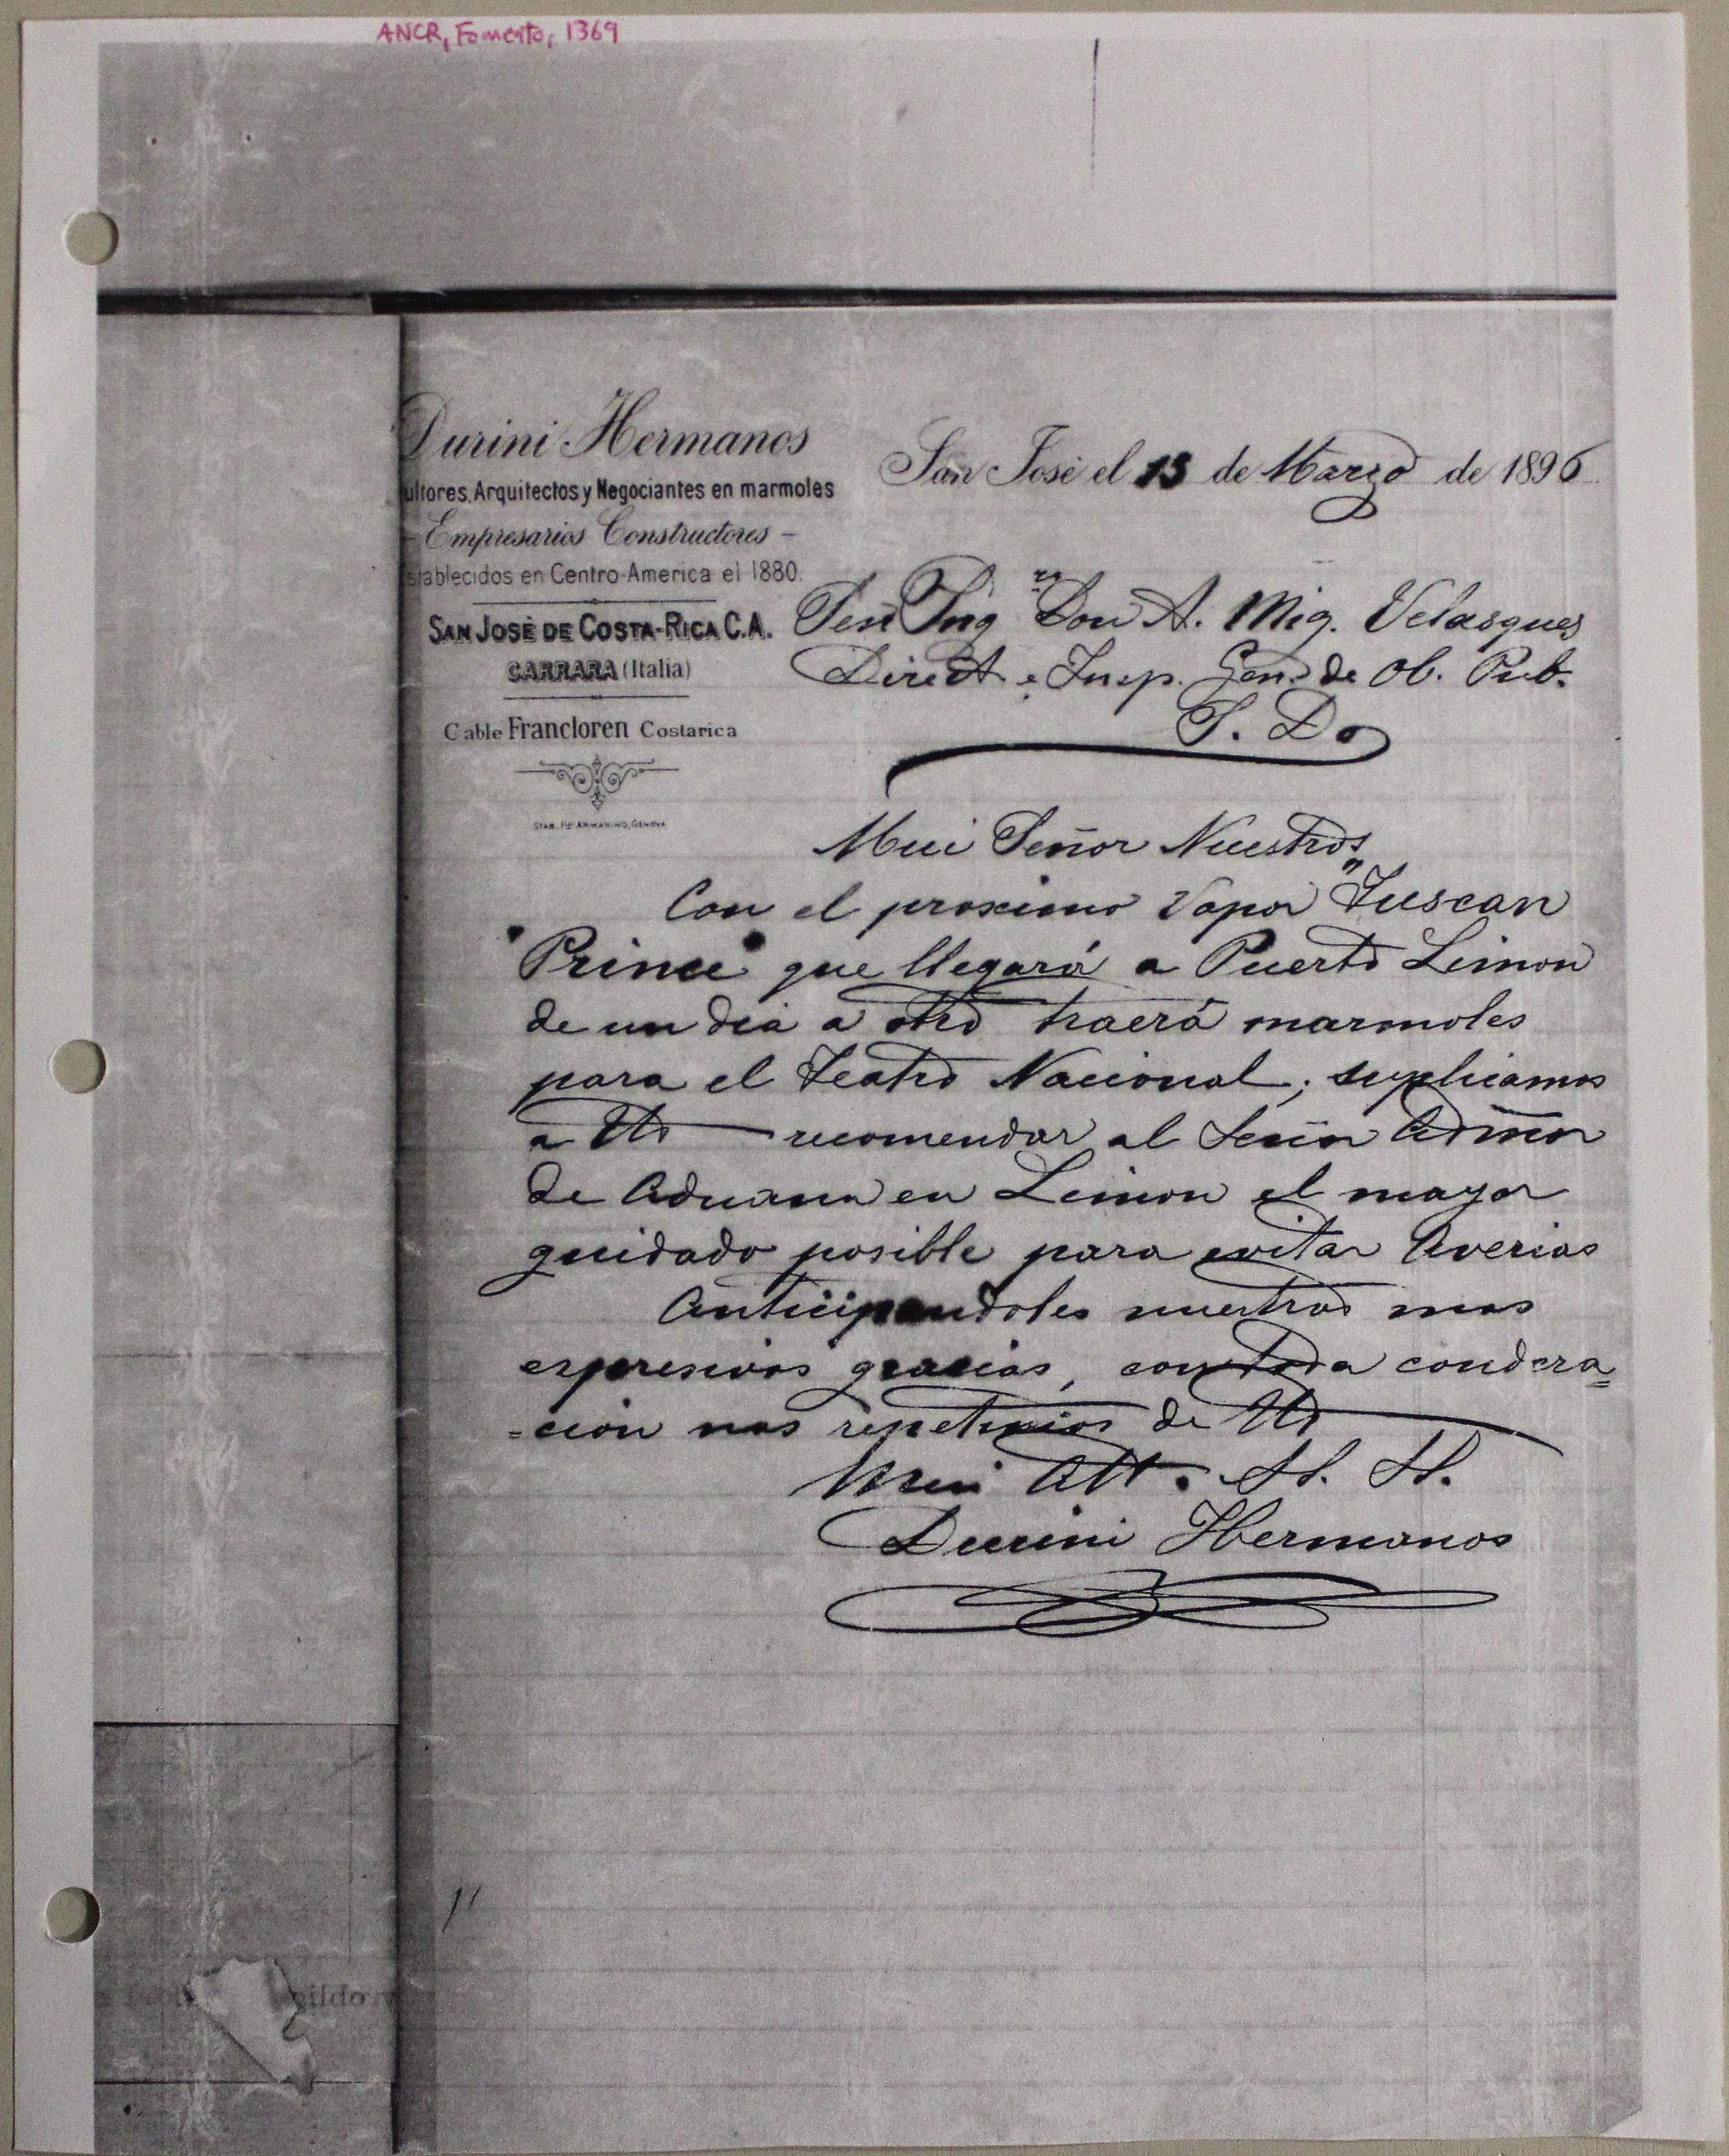 ANCR, Fomento, 1369
Durini Hermanos
ultores, Arquitectos y Negociantes en marmoles
- Empresarios Constructores -
stablecidos en Centro-America el 1880.
SAN JOSÉ DE COSTA-RICA C.A.
CARRARA (Italia)
Cable Francloren Costarica
STAB. FLLI ARMANINO, GENOVA
San José el 13 de Marzo de 1896
Señ Ing ro Don A. Mig. Velasques
Direct e Insp. Gen. de Ob. Pub.
S. D.
Mui Señor Nuestros
Con el proximo Vapor "Tuscan
Prince" que llegará a Puerto Limon
de un dia a otro traerá marmoles
para el Teatro Nacional; suplicamos
a Ud recomendar al Señor Admor
de Aduana en Limon el mayor
guidado posible para evitar Averias
Anticipandoles nuestras mas
expresivas gracias, con toda condera=
=cion nos repetimos de Ud
Mui Att. S. S.
Durini Hermanos
gildo